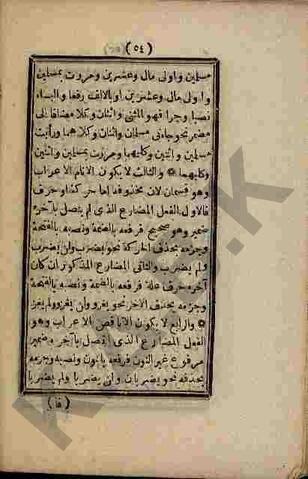 (٥٤)
مسلمين واولى مال وعشرين ومررت بمسلمين
واولى مال وعشرين او بالالف رفعا والياء
نصبا وجرا فهو المثنى واثنان وكلا مضافا الى
مضمر نحو جاءنى مسلمان واثنان وكلاهما ورأيت
مسلمين واثنين وكليهما ومررت بمسلمين واثنين
وكليهما والثالث لا يكون الا تام الاعراب
وهو قسمان لان محذوفه اما حركة او حرف
فالاول الفعل المضارع الذى لم يتصل بآخره
ضمير وهو صحيح فرفعه بالضمة ونصبه بالفتحة
وجزمه بحذف الحركة نحو يضرب ولن يضرب
ولم يضرب والثانى المضارع المذكور ان كان
آخره حرف علة فرفعه بالضمة ونصبه بالفتحة
وجزمه بحذف الآخر نحو يغزو ولن يغزو ولم يغز
والرابع لا يكون الا ناقص الاعراب وهو
الفعل المضارع الذى اتصل بآخره ضمير
مرفوع غير النون فرفعه بالنون ونصبه وجزمه
بحذفه نحو يضربان ولن يضربا ولم يضربا
(فا)